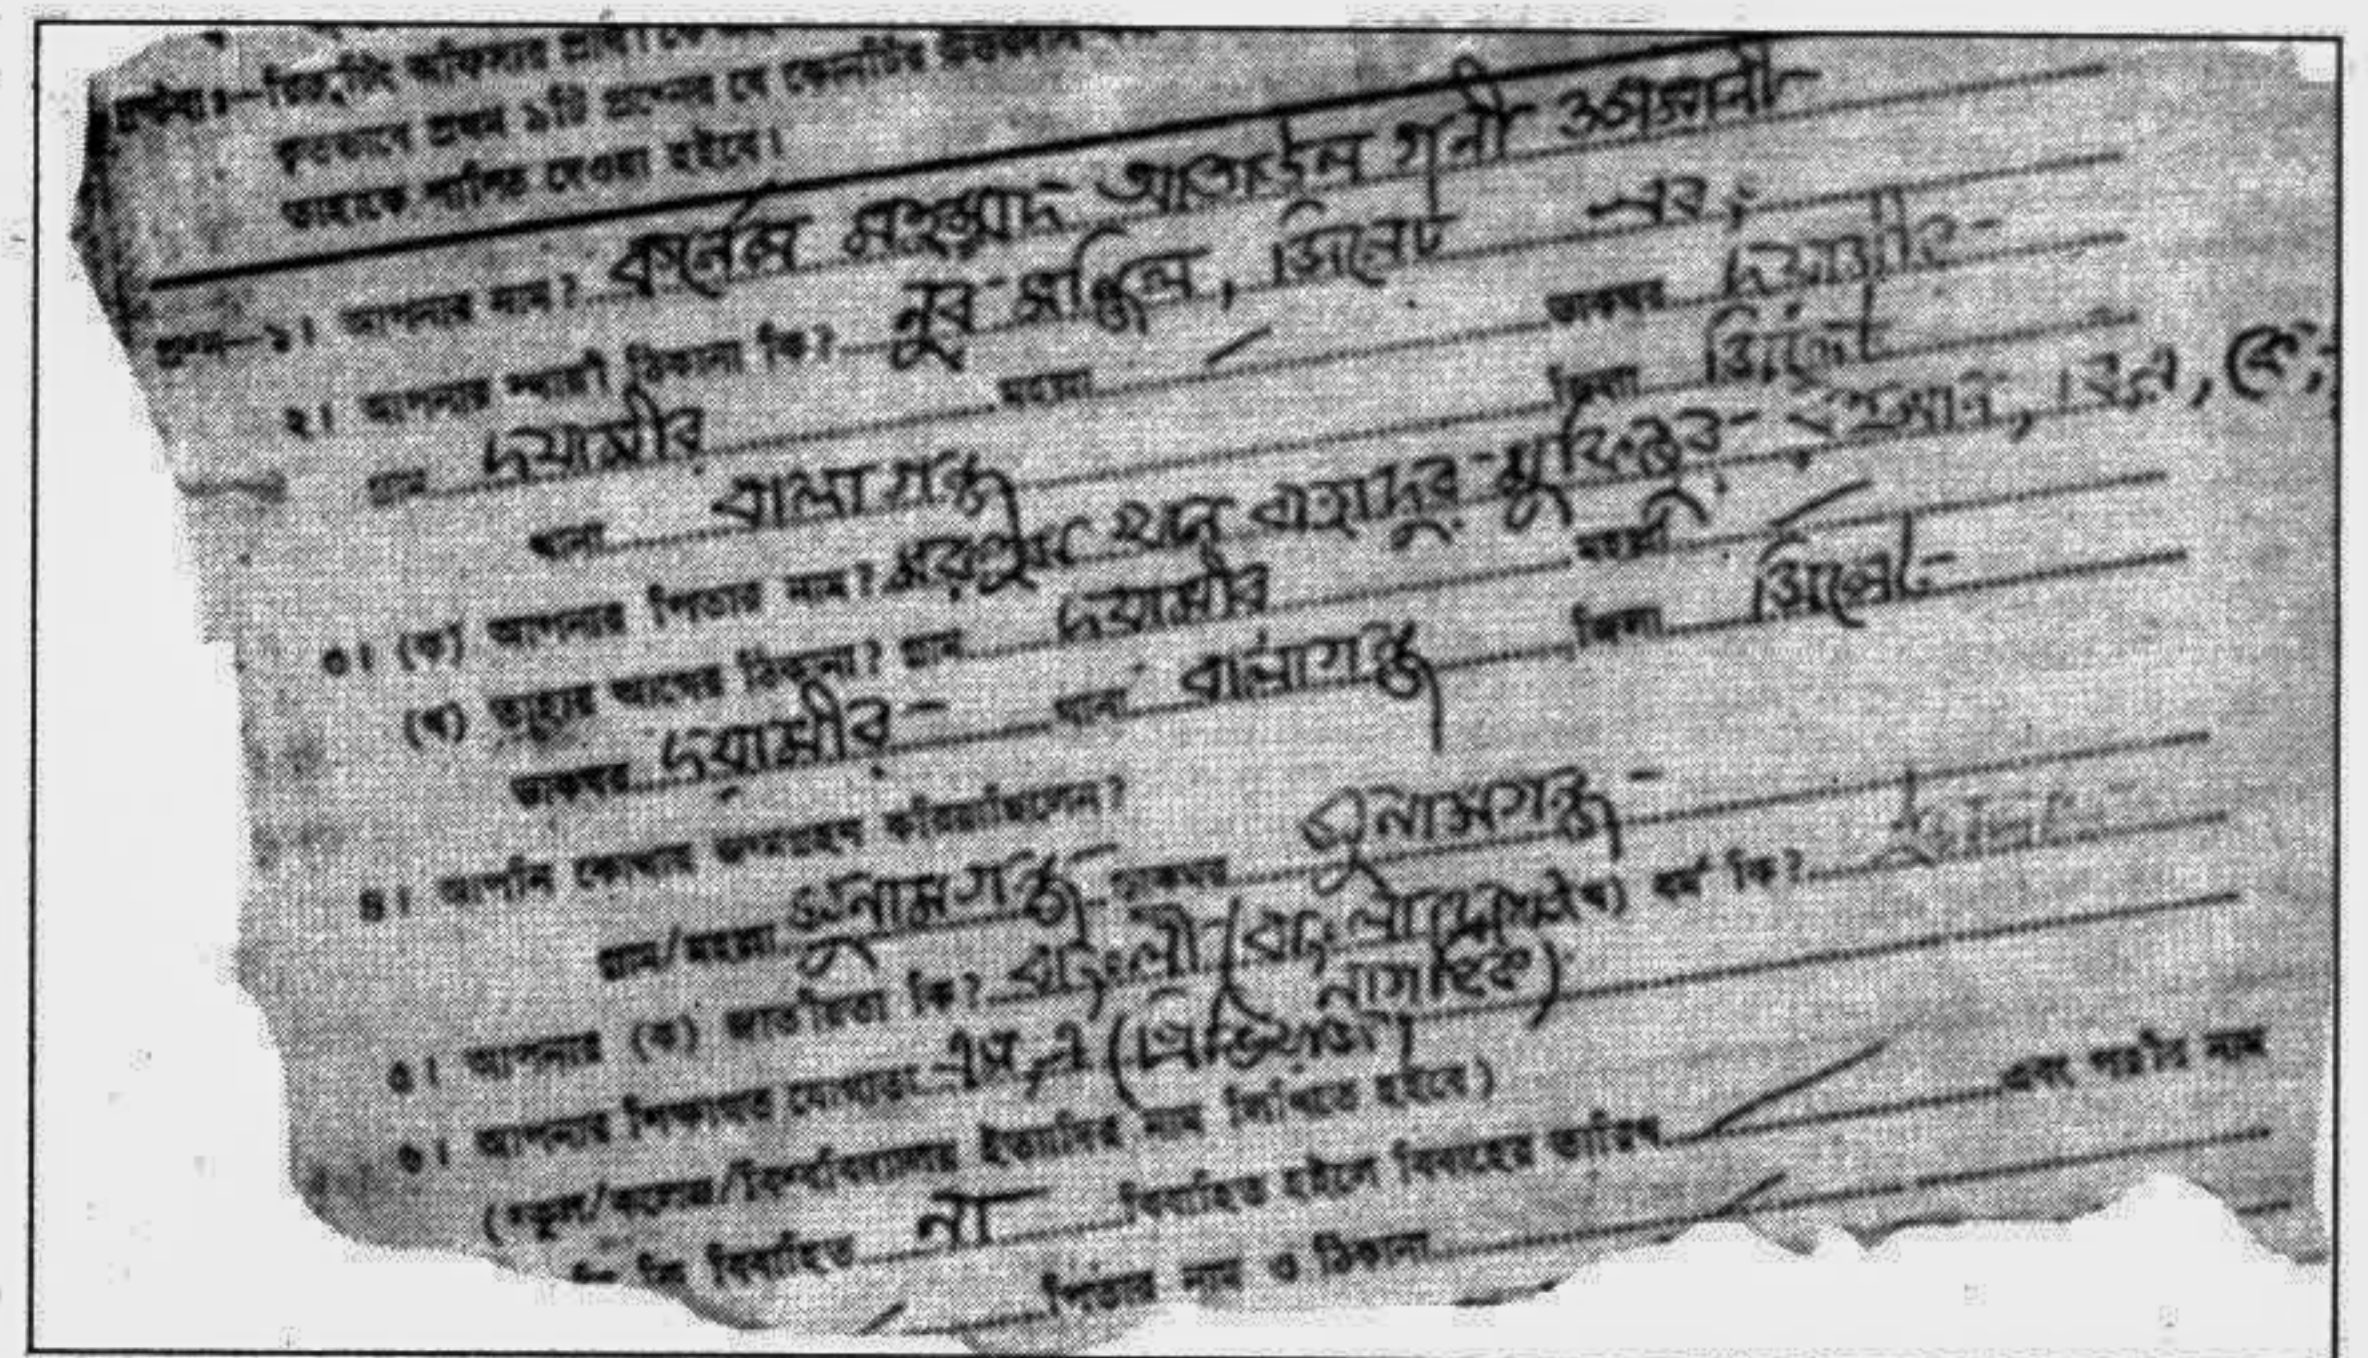 দ্রষ্টব্য ঃ—রিক্রুটিং অফিসার প্রার্থীকে
কৃতভাবে প্রথম ১টি প্রশ্নের যে কোনটির
তাহাকে শাস্তি দেওয়া হইবে।
প্রশ্ন—১। আপনার নাম? কর্নেল মহম্মদ আতাউল গনী ওসমানী—
২। আপনার স্থায়ী ঠিকানা কি? নূর মঞ্জিল, সিলেট
গ্রাম দয়ামীর মহল্লা ডাকঘর দয়ামীর-
থানা বালাগঞ্জ জিলা সিলেট
৩। (ক) আপনার পিতার নাম? মরহুম খান বাহাদুর মফিজুর রহমান, বি, এ,
(খ) তাহার আদের ঠিকানা? গ্রাম দয়ামীর মহল্লা
ডাকঘর দয়ামীর- থানা বালাগঞ্জ জিলা সিলেট-
৪। আপনি কোথায় জন্মগ্রহণ করিয়াছিলেন?
গ্রাম/মহল্লা সুনামগঞ্জ- ডাকঘর সুনামগঞ্জ-
৫। আপনার (ক) জাতীয়তা কি? বাঙ্গালী (বাংলাদেশ (খ) ধর্ম কি? ইসলাম
নাগরিক)
৬। আপনার শিক্ষাগত যোগ্যতা এম, এ (প্রিভিয়াস)
(স্কুল/কলেজ/বিশ্ববিদ্যালয় ইত্যাদির নাম লিখিতে হইবে)
কি বিবাহিত না বিবাহিত হইলে বিবাহের তারিখ এবং পত্নীর নাম
পিতার নাম ও ঠিকানা